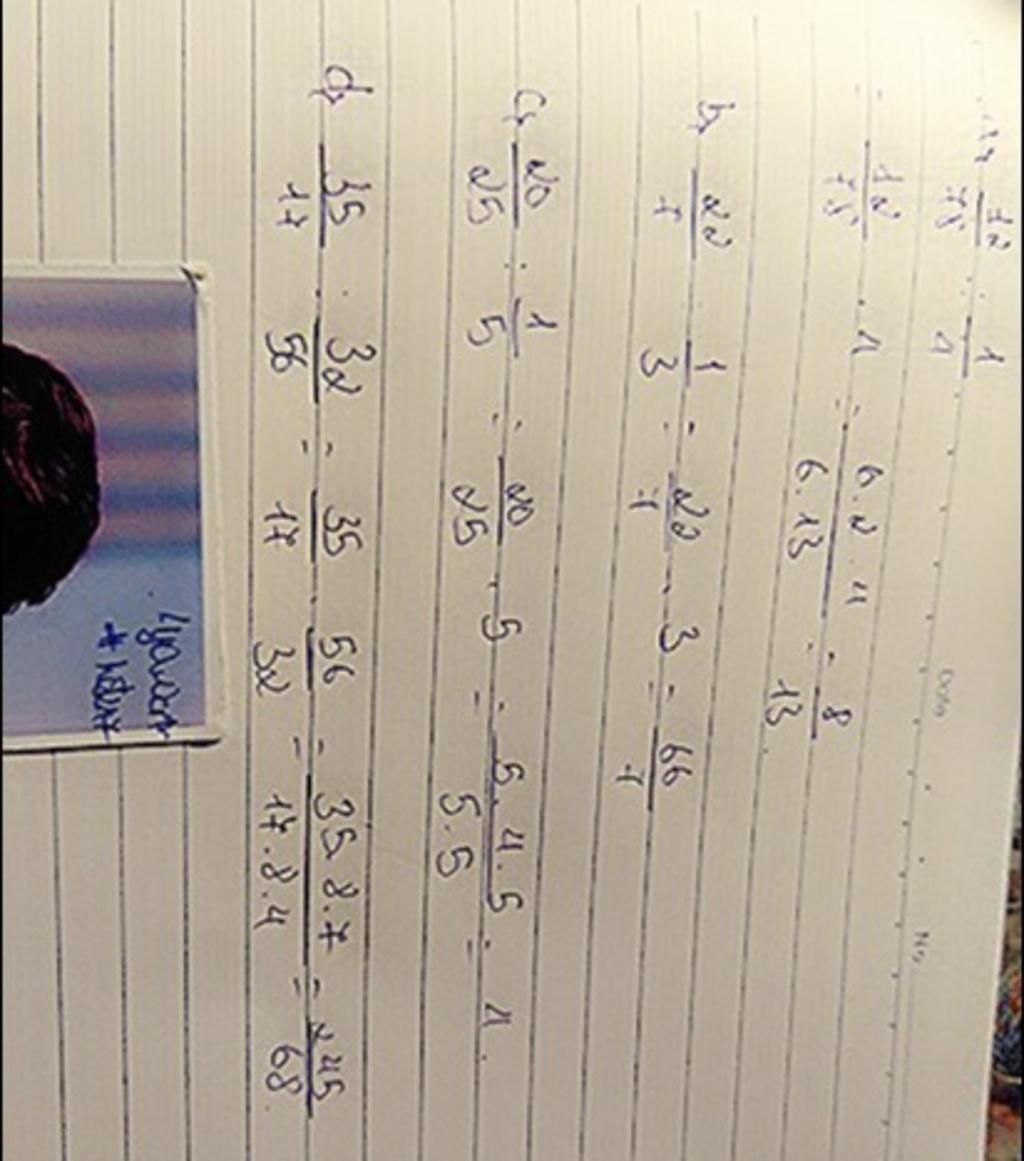 Date
No.
12/78 : 1/4
= 12/78 . 4 = 6.2.4/6.13 = 8/13
b, 22/7 : 1/3 = 22/7 . 3 = 66/7
c, 20/25 : 1/5 = 20/25 . 5 = 5.4.5/5.5 = 4.
d, 35/17 : 32/56 = 35/17 . 56/32 = 35.8.7/17.8.4 = 245/68